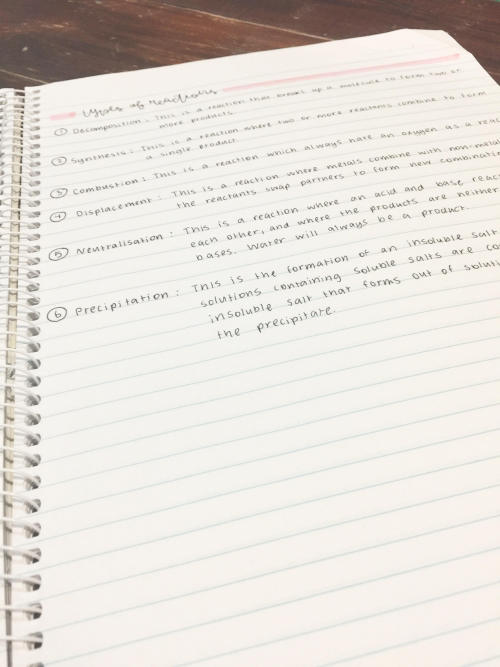 types of reactions
① Decomposition : This is a reaction that breaks up a molecule to form two or
more products.
② Synthesis : This is a reaction where two or more reactants combine to form
a single product.
③ Combustion : This is a reaction which always hate an oxygen as a reac
④ Displacement : This is a reaction where metals combine with non-metal
the reactants swap partners to form new combinatio
⑤ Neutralisation : This is a reaction where an acid and base reac
each other, and where the products are neither
bases. Water will always be a product.
⑥ Precipitation : This is the formation of an insoluble salt
solutions containing soluble salts are co
insoluble salt that forms out of soluti
the precipitate.